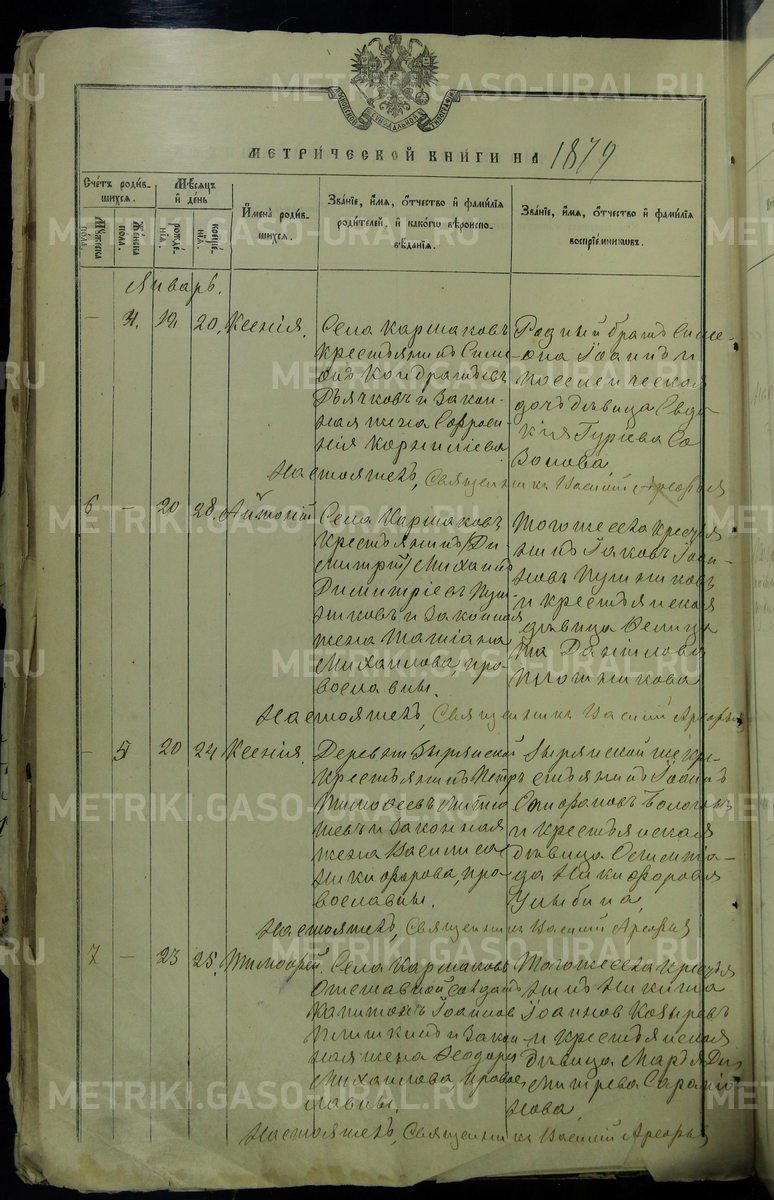 METRIKI.GASO-URAL.RU
МЕТРИЧЕСКОЙ КНИГИ НА 1879
Счетъ родив-
шихся.
Мѣсяцъ
и день
Мужеска
пола.
Женска
пола.
рожде-
нія.
креще-
нія.
Имена родив-
шихся.
Званіе, имя, отчество и фамилія
родителей, и какого вѣроиспо-
вѣданія.
Званіе, имя, отчество и фамилія
воспріемниковъ.
Январь.
– 4. 12 20. Ксенія.
Села Каршаковъ
крестьянинъ Симе
онъ Кондратьевъ
Дьячковъ и закон-
ная жена
Корниліева
Родный братъ Симе-
она Іоаннъ и
дочь дѣвица Евдо
кія Гуріева Са
зонова.
Настоятель, Священникъ Василій
6 – 20 28. Антоній
Села Каршаковъ
крестьянинъ /Ди
митрій/ Михаилъ
Димитріевъ Пут
никовъ и законная
жена Татіана
Михаилова, пра-
вославны.
Тогоже села крестья
нинъ Іаковъ Іоан-
новъ
и крестьянская
дѣвица
Данилова
Плотникова
Настоятель, Священникъ Василій
– 5 20 24 Ксенія.
Деревни Бырянской
крестьянинъ Петръ
Тимофеевъ
и законная
жена Василиса
Никифорова, пра-
вославны.
Бырянской же кре-
стьянинъ Іоаннъ
и крестьянская
дѣвица
Никифорова
Улыбина,
Настоятель, Священникъ Василій
7 – 23 25. Тимофей.
Села Каршаковъ
отставной солдатъ
Капитонъ Іоанновъ
и закон
ная жена Ѳеодора
Михаилова, право
славны.
Тогоже села крестья
нинъ Никита
Іоанновъ Козыревъ
и крестьянская
дѣвица Марья Ди
митрева
Настоятель, Священникъ Василій